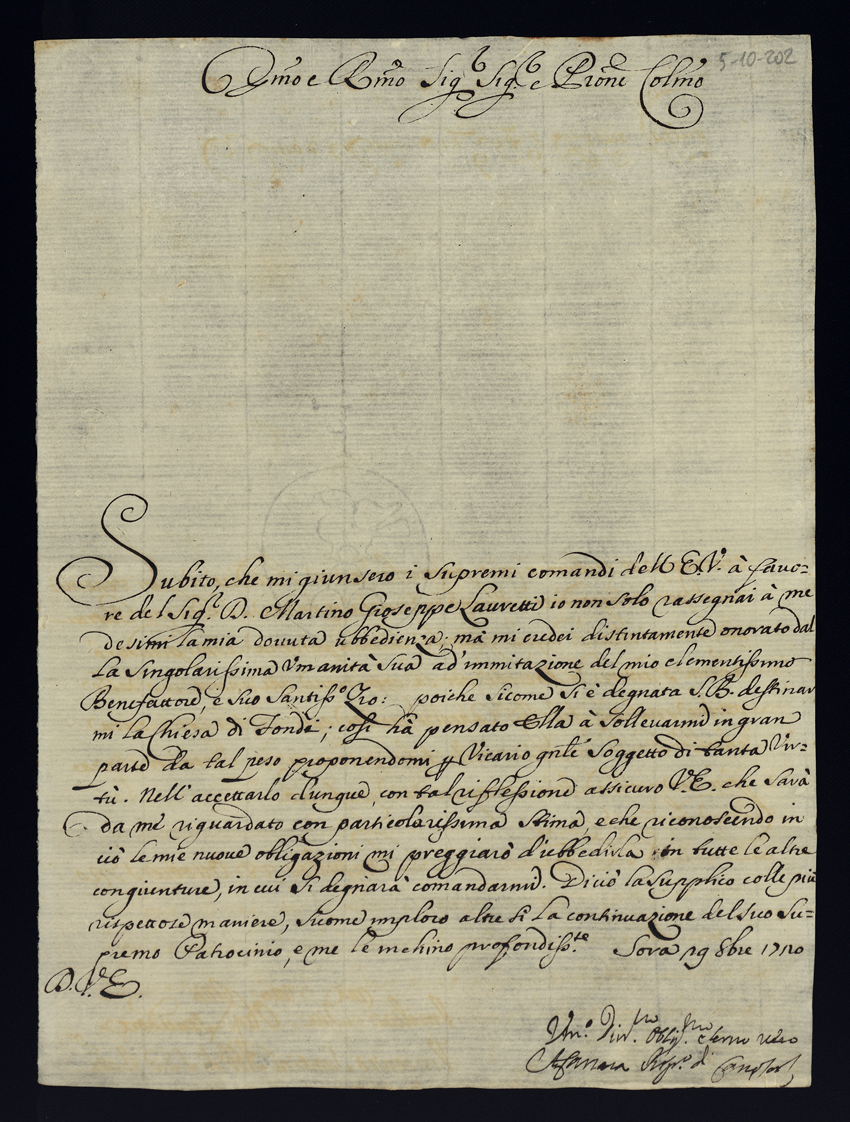 5-10-202
Emo e Rmo Sig.r Sig.r e Prone Colmo
Subito, che mi giunsero i supremi comandi dell' E.V. à favo-
re del Sig.r D. Martino Gioseppe Lauretti io non solo rassegnai à me
desimi la mia dovuta ubbedienza; mà mi credei distintamente onorato dal
la singolarissima Umanità Sua ad' immitazione del mio clementissimo
Benefattore, e suo Santiss.o Zio: poiche sicome si è degnata S. B. destinar
mi la Chiesa di Fondi; così hà pensato Ella à sollevarmi in gran
parte da tal peso proponendomi p Vicario gnle soggetto di tanta Vir-
tù. Nell' accettarlo dunque, con tal riflessione assicuro V.E. che sarà
da me riguardato con particolarissima stima, e che riconoscendo in
ciò le mie nuove obligazioni mi preggiarò d'ubbedirla in tutte le altre
congiunture, in cui si degnarà comandarmi. Di ciò la supplico colle più
rispettose maniere, sicome imploro altresi la continuazione del suo Su-
premo Patrocinio, e me le inchino profondiss.te Sora 19 8bre 1720
D. V. E.
Um.o Div.mo Oblig.mo